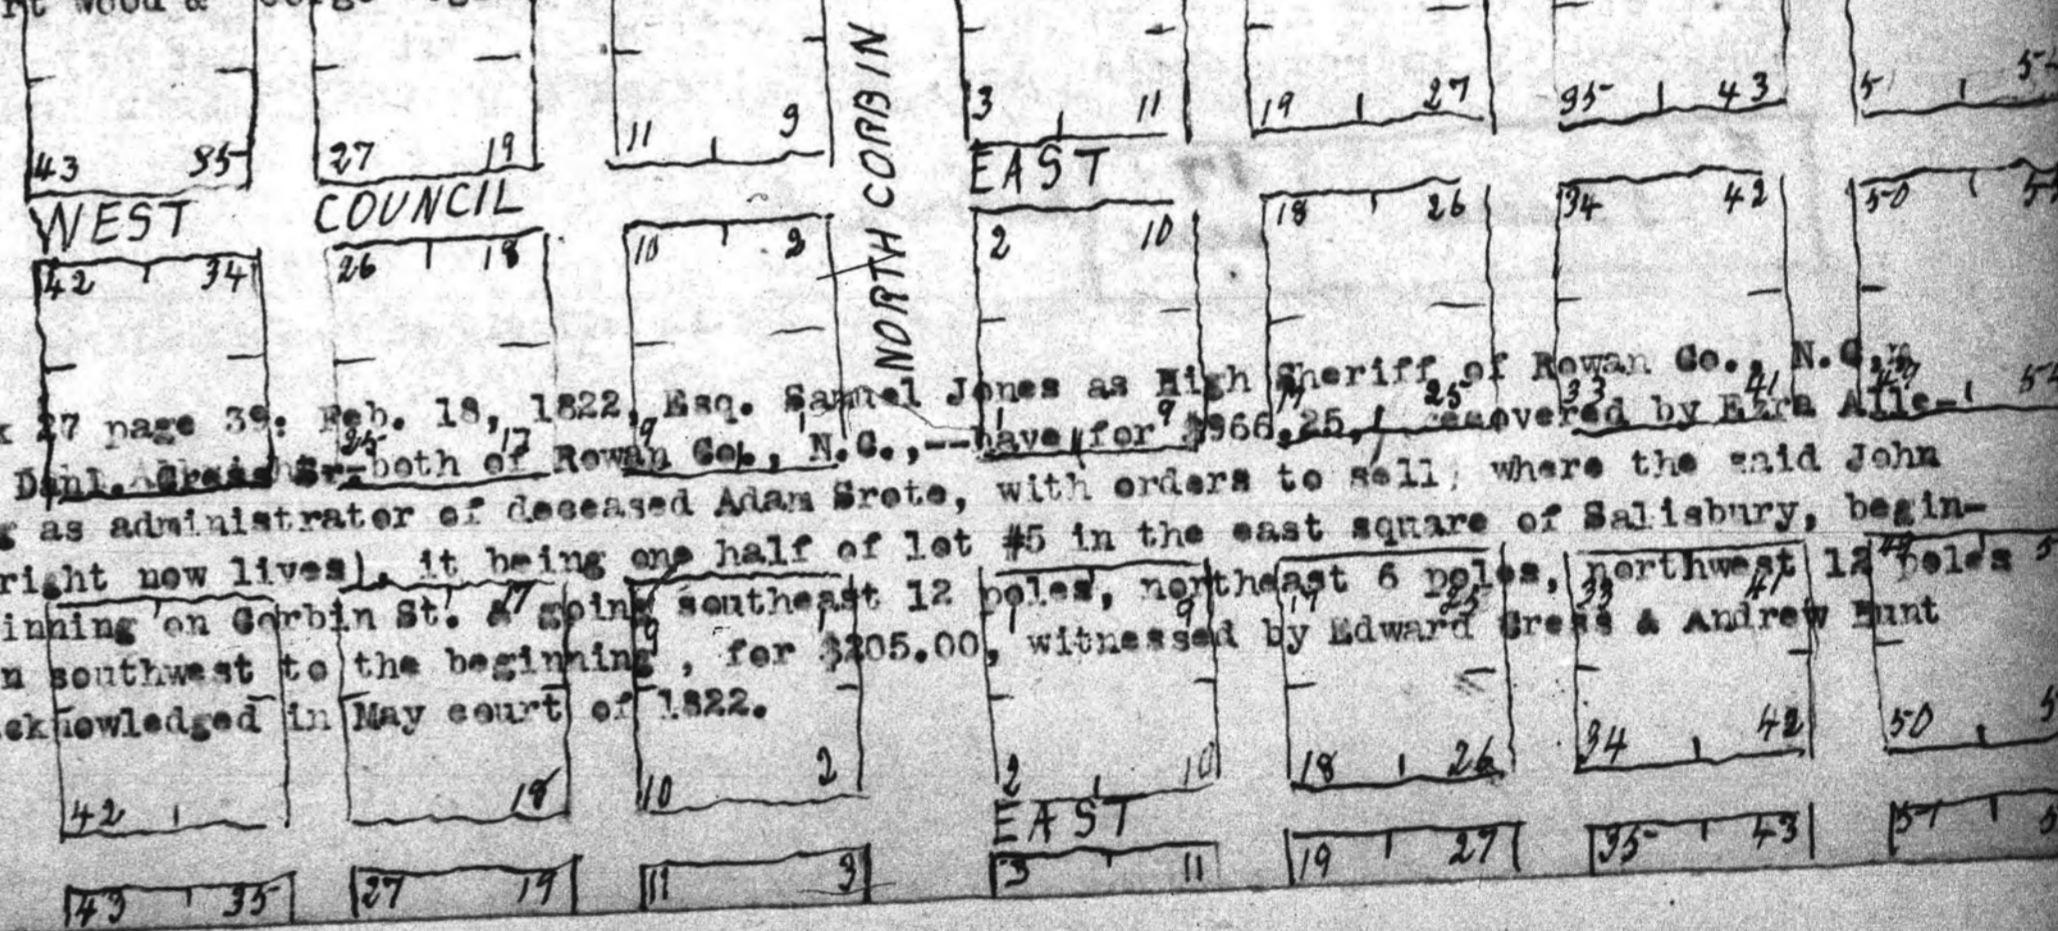 43 35 27 19 11 9 3 11 19 27 35 43 51
WEST COUNCIL NORTH CORBIN EAST
42 34 26 18 10 2 2 10 18 26 34 42 50
27 page 39: Feb. 18, 1822, Esq. Samuel Jones as High Sheriff of Rowan Co., N.C.,
25 17 9 1 1 9 17 25 33 41
Danl. both of Rowan Co., N.C.,--have for $966.25, recovered by Ezra Alle-
as administrator of deceased Adam Srote, with orders to sell, where the said John
right now lives), it being one half of lot #5 in the east square of Salisbury, begin-
inning on Corbin St. & going southeast 12 poles, northeast 6 poles, northwest 12 poles
17 9 1 1 9 17 25 33 41 49
n southwest to the beginning, for $205.00, witnessed by Edward Cress & Andrew Hunt
eknowledged in May court of 1822.
42 18 10 2 2 10 18 26 34 42 50
EAST
43 35 27 19 11 3 3 11 19 27 35 43 51